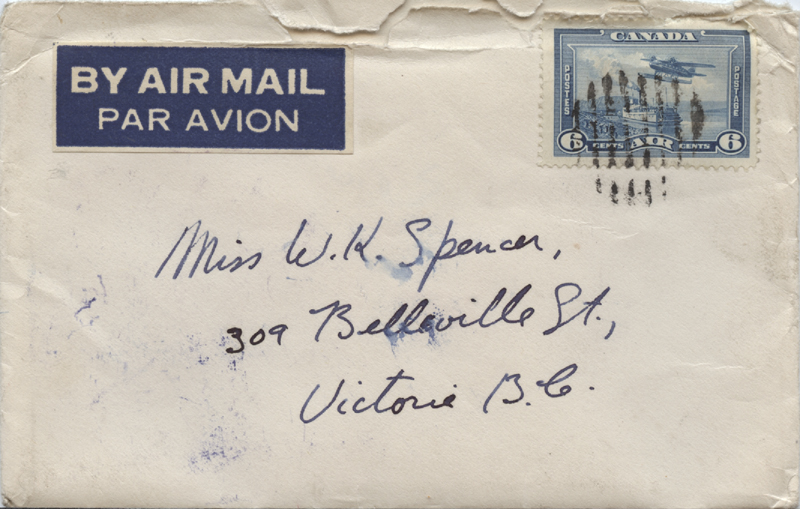 BY AIR MAIL
PAR AVION
CANADA
POSTES
POSTAGE
6 CENTS AIR CENTS 6
Miss W.K. Spencer,
309 Belleville St.,
Victoria B.C.